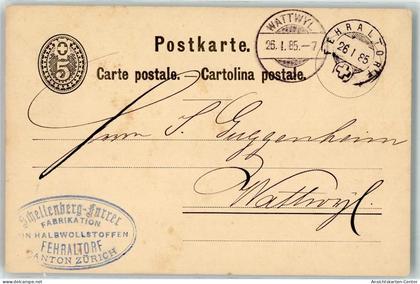 Postkarte.
Carte postale. — Cartolina postale.
5
WATTWYL
26. I. 85. - 7
FEHRALTORF
26 I 85
Herrn S. Guggenheim
Wattwyl.
Schellenberg-Furrer
FABRIKATION
VON HALBWOLLSTOFFEN
FEHRALTORF
KANTON ZÜRICH
www.delcampe.net
Ansichtskarten-Center.de